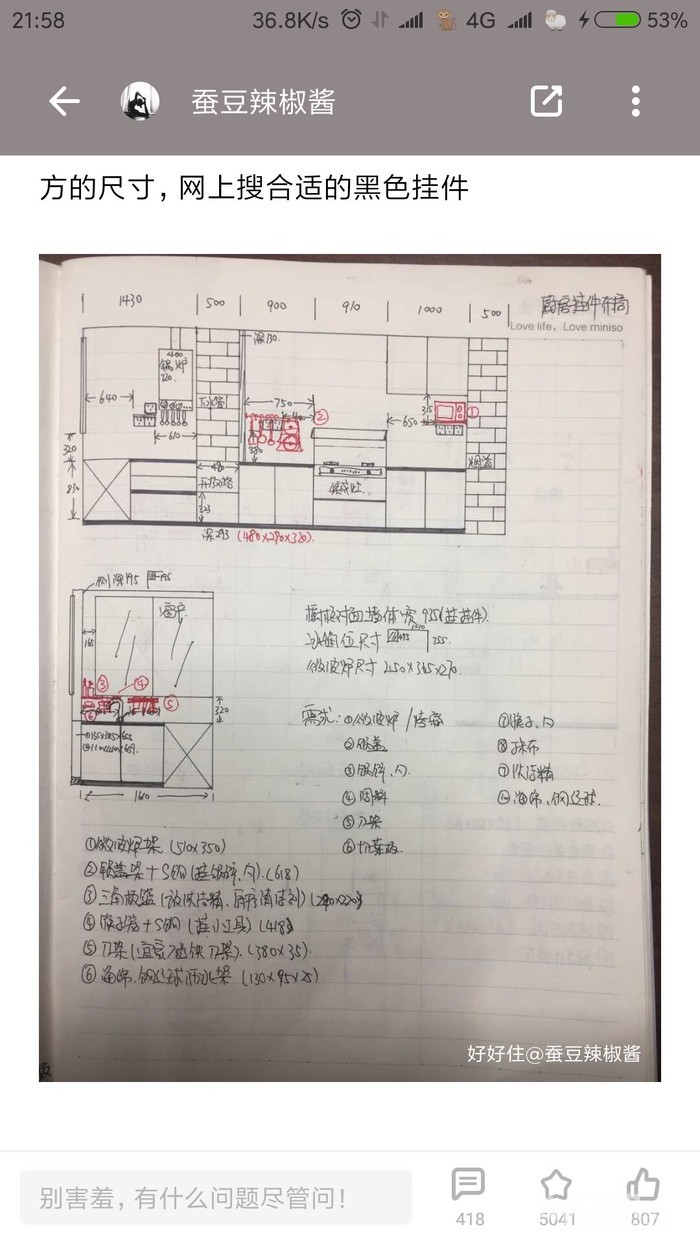 21:58
36.8K/s 4G 53%
蚕豆辣椒酱
方的尺寸，网上搜合适的黑色挂件
1430 500 900 910 1000 500
厨房挂件布局
Love life，Love miniso
400
锅炉
720
640
610
深130
750
400
②
380
650
315
①
320
830
480
开放格
323
集成灶
烟道
深293 (480×290×320)
窗户
165
③ ④ ⑤
⑥
320
1160
橱柜对面墙体宽 925(挂挂件)
冰箱位尺寸 755
微波炉尺寸 450×365×270
需求：①微波炉/烤箱
②锅盖
③锅铲、勺
④调料
⑤刀架
⑥切菜板
⑦筷子、勺
⑧抹布
⑨洗洁精
⑩海绵、钢丝球
①微波炉架 (510×350)
②锅盖架+S钩 (挂锅铲、勺) (618)
③三角网篮 (放洗洁精、厨房清洁剂)
④筷子笼+S钩 (挂小工具) (418)
⑤刀架 (宜家磁铁刀架) (380×35)
⑥海绵、钢丝球沥水架 (130×95×25)
好好住@蚕豆辣椒酱
别害羞，有什么问题尽管问！
418 5041 807